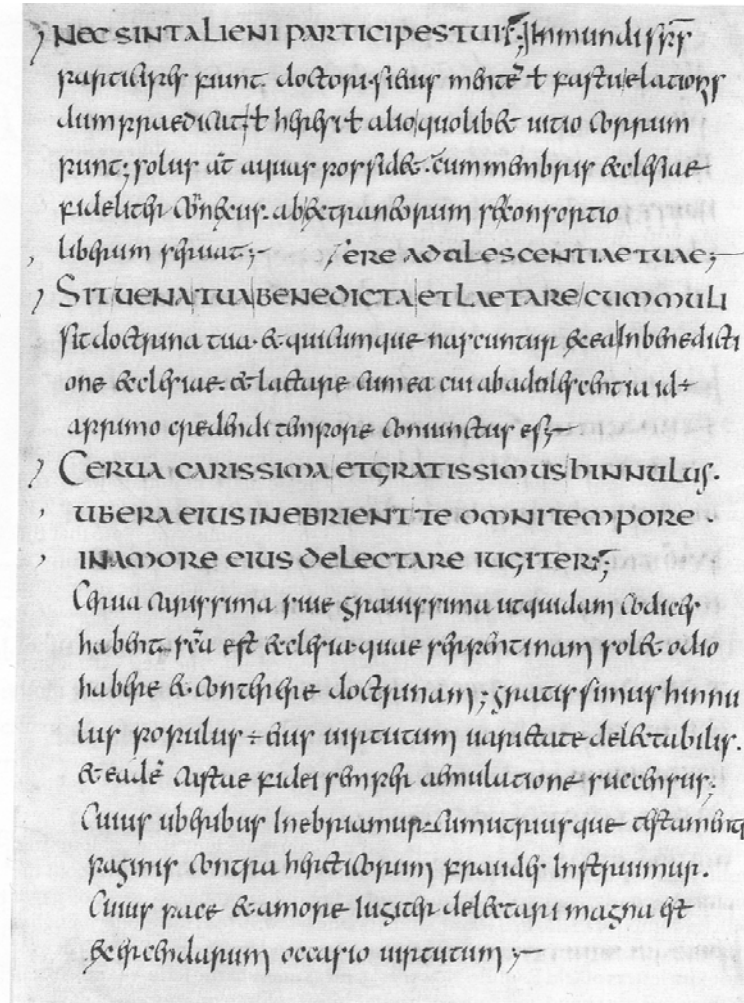 NEC SINT ALIENI PARTICIPES TUI; Inmundi sp̄s
participes fiunt doctoris. si eius mentē ł fastu elationis
dum praedicat; ł heresi ł alio quolibet uitio corrum
punt; solus aūt aquas possidet. cum membris eclesiae
fideliter conexus. ab extraneorum se consortio
liberum seruat;- / ERE ADULESCENTIAE TUAE;
SIT UENA TUA BENEDICTA ET LAETARE CUM MULI
sit doctrina tua. & quicumque nascuntur ex ea In benedicti
one eclesiae. & laetare cum ea cui ab adulescentia id÷
a primo credendi tempore coniunctus es;
CERUA CARISSIMA ET GRATISSIMUS HINNULUS.
UBERA EIUS INEBRIENT TE OMNI TEMPORE.
IN AMORE EIUS DELECTARE IUGITER;
Cerua carissima siue gratissima ut quidam codices
habent. sc̄a est eclesia quae serpentinam solet odio
habere & conterere doctrinam; gratissimus hinnu
lus populus ÷ eius uirtutum uarietate delectabilis.
& eadē castae fidei semper aemulatione succensus;
Cuius uberibus Inebriamur. cum utriusque testamenti
paginis contra hereticorum fraudes Instruimur.
Cuius pace & amore Iugiter delectari magna est
exercendarum occasio uirtutum;